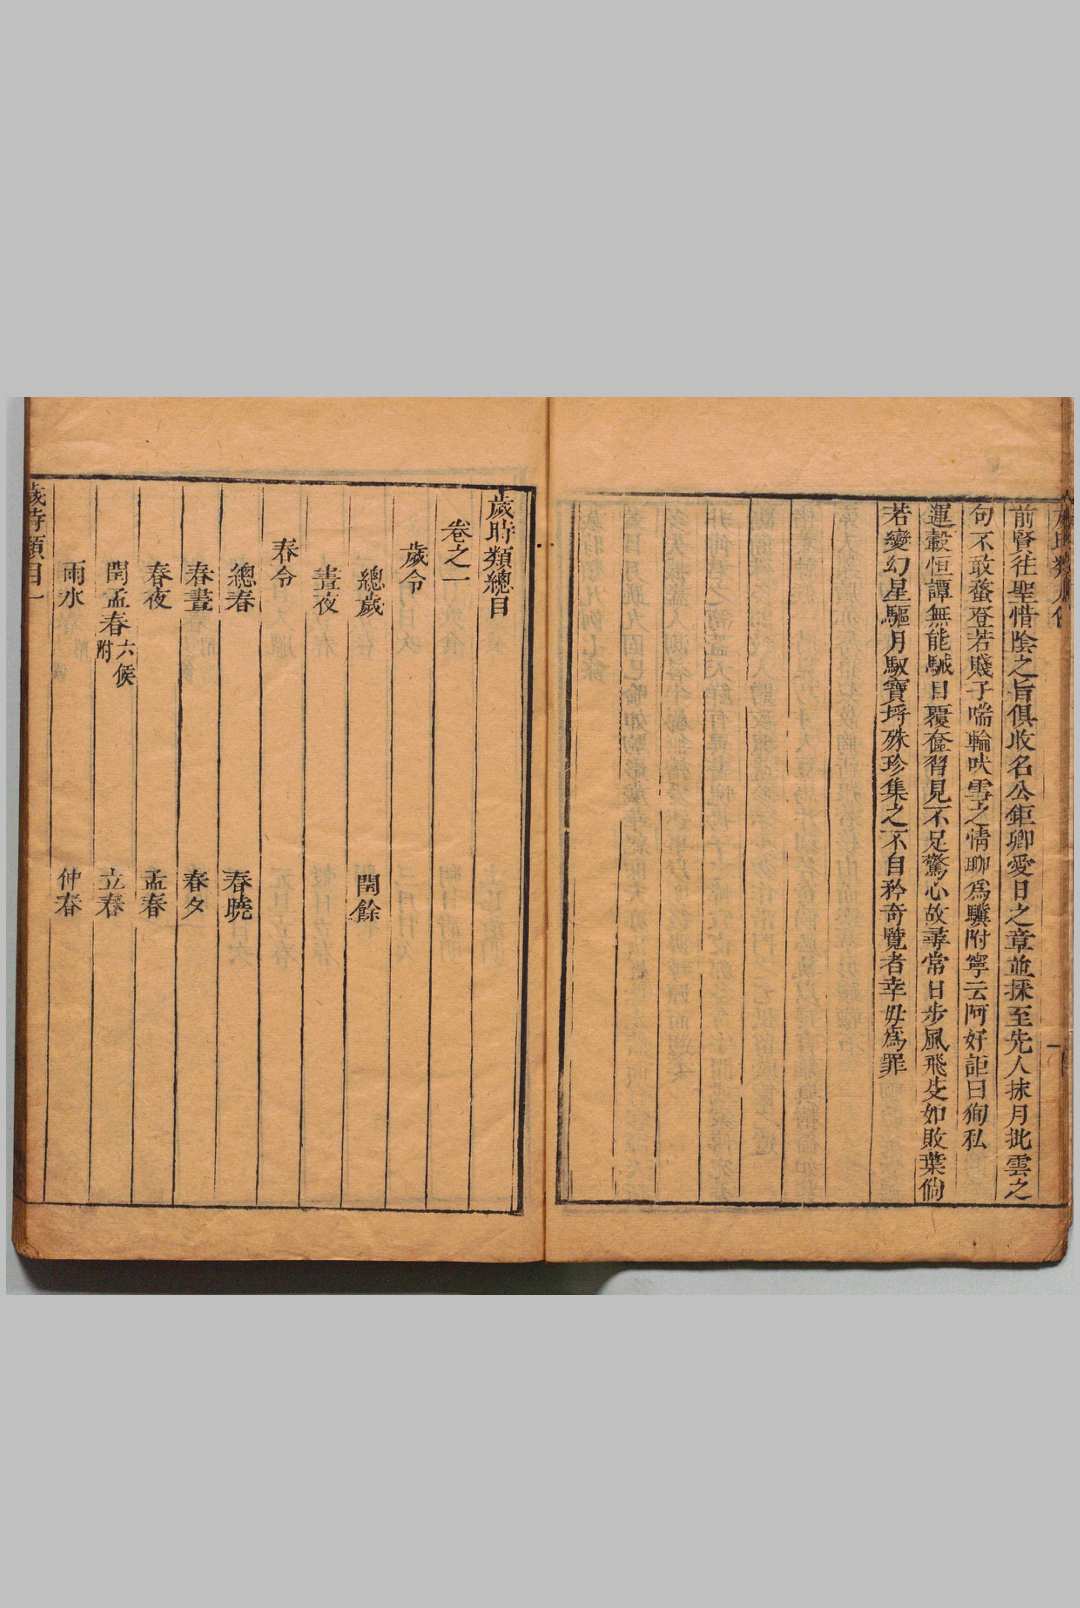 前賢往聖惜陰之旨俱收名公鉅卿愛日之章並採至先人抹月批雲之
句不敢蚕登若賤子喘輪吠雪之情聊為驥附寧云阿好詎曰狥私
運轂恒譚無能駴目覆奩習見不足驚心故尋常日步風飛芟如敗葉倘
若變幻星驅月馭寶埒殊珍集之不自矜奇覽者幸毋為罪
歲時類總目
卷之一
歲令
總歲 閏餘
晝夜
春令
總春 春曉
春晝 春夕
春夜 孟春
閏孟春 附六候 立春
雨水 仲春
歲時類目一